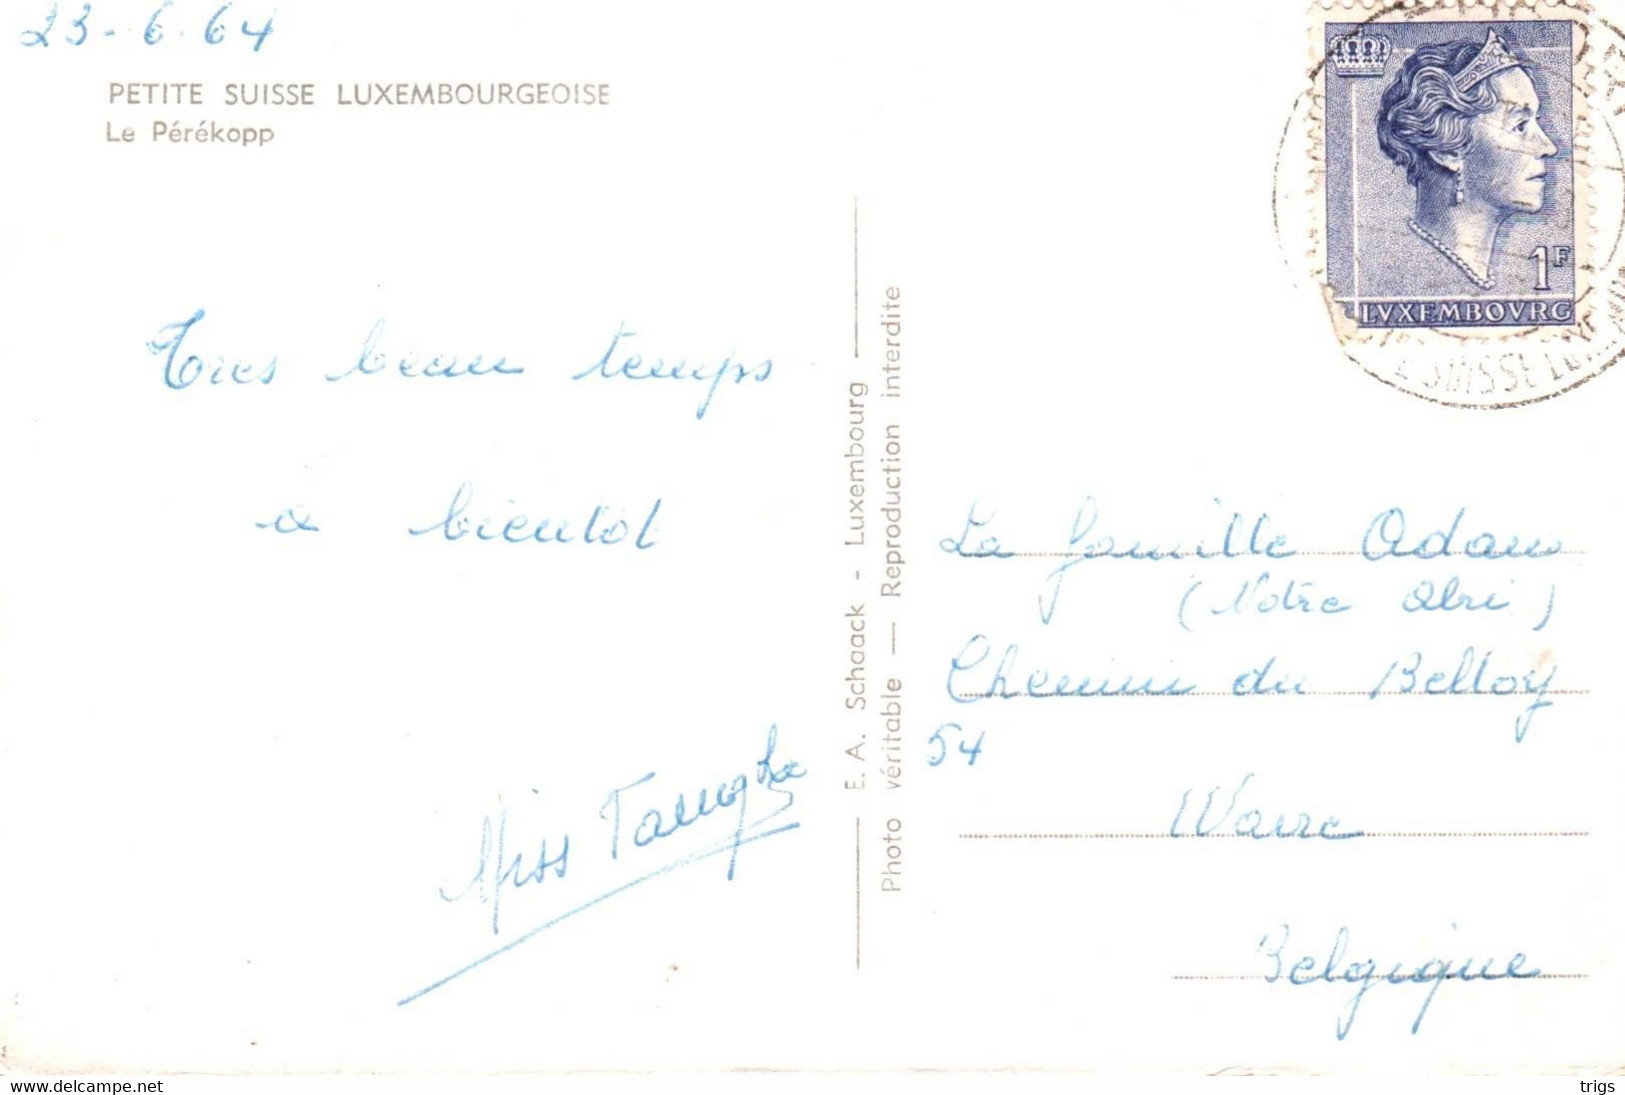 23-6.64
PETITE SUISSE LUXEMBOURGEOISE
Le Pérékopp
Tres beau temps
a bientot
Miss
E. A. Schaack - Luxembourg
Photo véritable — Reproduction interdite
1F
LVXEMBOVRG
SUISSE
La famille Adam
(Notre abri)
Chemin du Belloy
54
Wavre
Belgique
www.delcampe.net
trigs